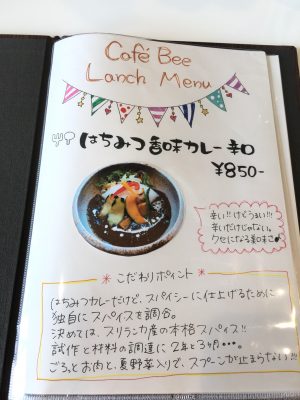 Café Bee
Lanch Menu
はちみつ香味カレー 辛口
¥850-
辛い!!けどうまい!!!
辛いだけじゃない。
クセになる香味さ♪
こだわりポイント
はちみつカレーだけど、スパイシーに仕上げるために
独自にスパイスを調合。
決めては、スリランカ産の本格スパイス!!
試作と材料の調達に2年と3ヶ月・・・。
ごろっとお肉と、夏野菜入りで、スプーンが止まらない!!!